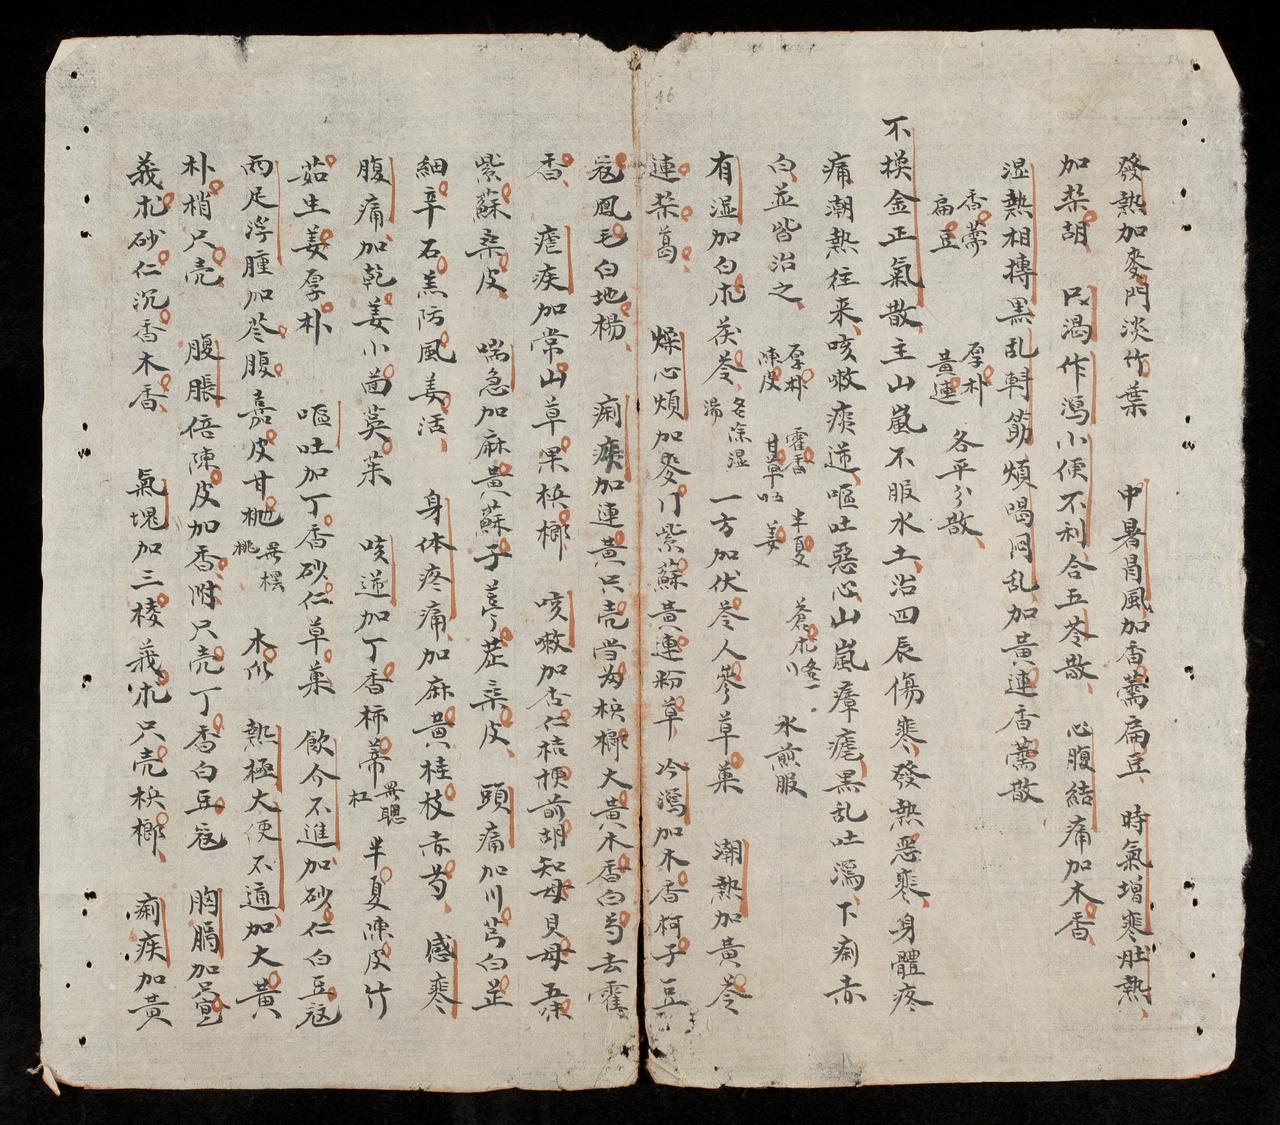 發熱加麥門淡竹葉　中暑冐風加香薷扁豆、時氣增寒肚熱、
加柴胡　口渴作瀉小便不利合五苓散、心腹結痛加木香、
湿熱相摶黑乱斡筋煩喝悶乱加黃連香薷散
香薷　厚朴
扁豆　黃連　各平分散、
不換金正氣散、主山嵐不服水土、治四辰傷寒、發熱惡寒、身體疼
痛潮熱往来、咳嗽痰逆、嘔吐惡心山嵐瘴瘧、黑乱吐瀉、下痢赤
白、並皆治之、厚朴　陳皮　霍香　甘草　姜　半夏　蒼朮　水煎服
有湿加白朮茯苓、名除湿湯　一方加伏苓人參草菓　潮熱加黃苓
連柴葛、燥心煩加麥門紫蘇黃連粉草、冷瀉加木香柯子豆
蔻鳳毛白地楊、痢痰加連黃只壳当为梹榔大黃木香白芍去霍
香、瘧疾加常山草果梹榔　咳嗽加杏仁桔梗前胡知母貝母
紫蘇桑皮、喘急加麻黃蘇子桑皮、頭痛加川芎白芷
細辛石羔防風姜活、身体疼痛、加麻黃桂枝赤芍、感寒
腹痛加乾姜小茴茱　咳逆加丁香柿蒂半夏陳皮竹
茹生姜厚朴　嘔吐加丁香砂仁草菓　飲今不進加砂仁白豆蔻
两足浮腫加苓腹、嘉皮甘桃　木　熱極大便不通加大黃
朴梢只壳　腹脹倍陳皮加香附只壳丁香白豆蔻　胸膈加
莪朮砂仁沉香木香、氣塊加三棱莪朮只壳梹榔、痢疾加黃